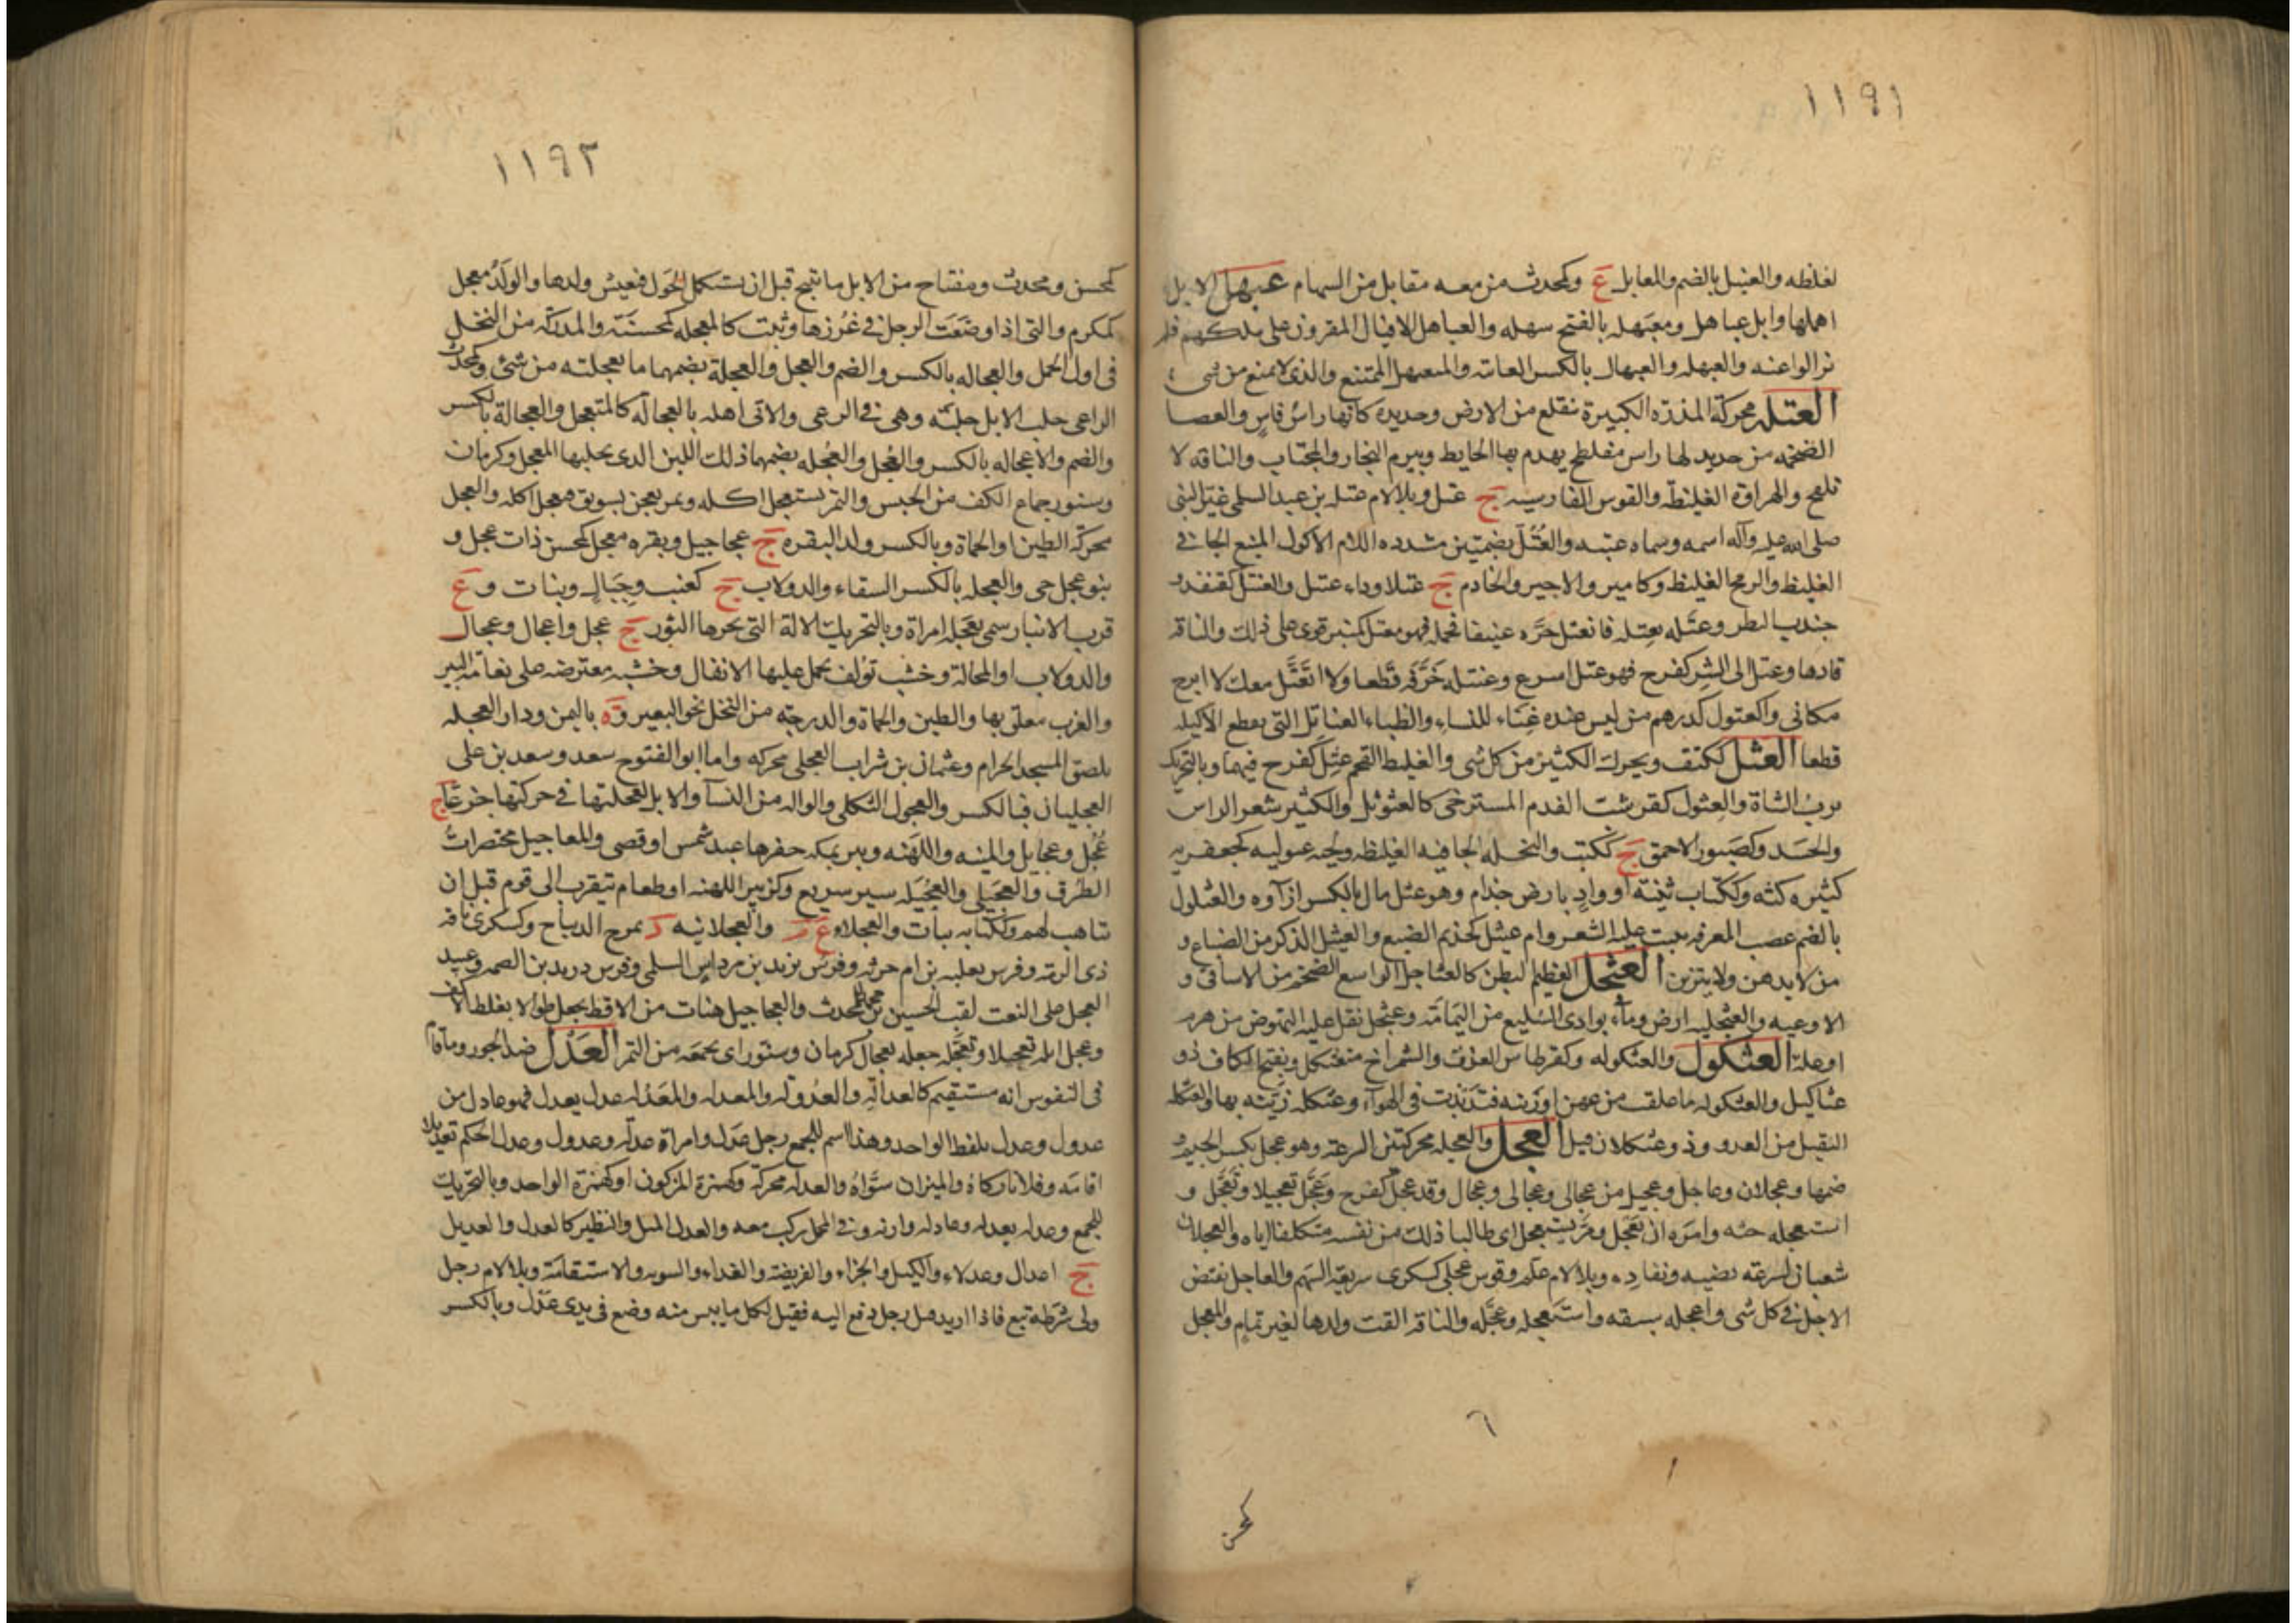 ١١٩١
لغلظه والعنبل بالضم والمعابل ع وكمحدث من معه مقابل من السهام عبهل الابل
اهملها وابل عباهل ومعبهله بالفتح سهله والعباهل الاقيال المقرون على ملكهم فلم
نزالوا عنه والعبهله والعبهال بالكسر العاته والمتعبهل الممتنع والذى لا يمنع من شىء
العتله محركة المذرة الكبيرة تنقلع من الارض وحديدة كانها راس فاس والعصا
الضخمه من حديد لها راس مفلطح يهدم بها الحايط وبيرم النجار والمجتاب والناقه لا
تلقح والهراوة الغليظة والقوس الفارسيه ج عتل وبلا لام عتله بن عبد السلمى غيّر النبى
صلى الله عليه وآله اسمه وسماه عتبه والعُتُلّ بضمتين مشدده اللام الاكول المنيع الجافى
الغليظ والرمح الغليظ وكامير والاجير والخادم ج عتلا وداء عتيل والعنتل كقنفذ و
جندب البظر وعتله يعتله فانعتل جرّه عنيفا فحمله فهو معتل كمنبر قوى على ذلك والناقة
قادها وعتل الى الشر كفرح فهو عتل اسرع وعنتله خَرَّقه قطعا ولا اتعتّل معك لا ابرح
مكانى والعتول كدرهم من ليس عنده غناء للنساء والظباء العناتل التى تقطع الاكيله
قطعا العثل ككتف ويحرك الكثير من كل شى والغليظ الفخم عثل كفرح فيهما وبالتحريك
ثرب الشاة والعثول كقرشب الفدم المسترخى كالعثوثل والكثير شعر الراس
والجسد وكصبور الاحمق ج ككتب والنخله الجافيه الغليظه ولحيه عثوليه كجعفريه
كثيره كثه وككتاب ثنيّة او وادٍ بارض جذام وهو عثل مال بالكسر ازاؤه والعثلول
بالضم عصب المعرفه ينبت عليه الشعر وام عثيل كحذيم الضبع والعثيل الذكر من الضباع و
من لا يدهن ولا يتزين العثجل العظيم البطن كالعثاجل الواسع الضخم من الاساقى و
الاوعيه والعثجليه ارض وماء بوادى السليع من اليمامة وعثجل ثقل عليه النهوض من هرم
او علة العثكول والعثكوله وكقرطاس العذق والشمراخ متعثكل وبفتح الكاف ذو
عثاكيل والعثكوله ما علق من عهن او زينه فتذبذبت فى الهواء وعثكله زيّنه بها والعثكله
الثقيل من العدو وذو عثكلان قيل العجل والعجله محركتين السرعة وهو عجل بكسر الجيم و
ضمها وعجلان وعاجل وعجيل من عجالى وعجالى وعجال وقد عجل كفرح وعجّل تعجيلا وتعجّل و
استعجله حثه وامره ان يعجل ومرّ يستعجل اى طالبا ذلك من نفسه متكلفا اياه والعجلان
شعبان لسرعة مضيه ونفاده وبلا لام علم وقوس عجلى كسكرى سريعة السهم والعاجل نقيض
الاجل فى كل شى واعجله سبقه واستعجله وعجّله والناقة القت ولدها لغير تمام والمعجل
٦
كمحسن
١١٩٢
كمحسن ومحدث ومفتاح من الابل ما تنتج قبل ان تستكمل الحَول فيعيش ولدها والولد معجل
كمكرم والتى اذا وضَعَت الرجل فى غرزها وثبت كالمعجله كمحسنة والمدركه من النخل
فى اول الحمل والعجاله بالكسر والضم والعجل والعجلة بضمهما ما تعجلته من شئ وكمحدث
الراعى حلب الابل حلبة وهى فى الرعى والاتى اهله بالعجالة كالمتعجل والعجالة بالكسر
والضم والاعجاله بالكسر والعجل والعجله بضمهما ذلك اللبن الذى يحلبها المعجل وكرمان
وسنور جماع الكف من الحيس والتمر يستعجل اكله وتمر يعجن بسويق فيعجل اكله والعجل
محركة الطين او الحماة وبالكسر ولد البقره ج عجاجيل وبقره معجل كمحسن ذات عجل و
بنو عجل حى والعجله بالكسر السقاء والدولاب ج كعنب وجبال ونبات و ع
قرب الانبار سمى بعجله امراة وبالتحريك الالة التى يجرها الثور ج عجل واعجال وعجال
والدولاب او المحالة وخشب تؤلف يحمل عليها الاثقال وخشبه معترضه على نعامة البير
والغرب معلق بها والطين والحماة والدرجة من النخل نحو النقير وة باليمن ودار العجله
بلصق المسجد الحرام وعثمان بن شراب العجلى محركه واما ابو الفتوح سعد وسعد بن على
العجليان فبالكسر والعجول الثكلى والواله من النسآ والابل لعجلتها فى حركتها جزعا ج
عُجُل وعجايل والمنيه واللهنه وبير بمكه حفرها عبد شمس او قصى والمعاجيل مختصرات
الطرق والعجيلى والعجيله سير سريع وكزبير اللهنه او طعام يتقرب الى قوم قبل ان
تتاهب لهم وككتابه نبات والعجلاء ع والعجلانيه بمرج الديباج وكسكرى ناقة
ذى الرمة وفرس ثعلبه بن ام حزنه وفرس يزيد بن مرداس السلمى وفرس دريد بن الصمه وعبيد
العجل على النعت لقب الحسين بن محمد المحدث والعجاجيل هنات من الاقط يجعل طوالا بغلظ الاكف
وعجل الله تعجيلا وتعجّله جعله يعجال كرمان وسنور اى بجمعه من التمر العَدْل ضد الجور وما قام
فى النفوس انه مستقيم كالعدالة والعدولة والمعدله والمعدَله عدل يعدل فهو عادل من
عدول وعدل بلفظ الواحد وهذا اسم للجمع رجل عدل وامراة عدل وعدلة وعدول وعدل الحكم تعديلا
اقامه وفلانا زكاه والميزان سوّاه والعدله محركة وكهمزة المزكون او كهمزة الواحد وبالتحريك
للجمع وعدله يعدله وعادله وازنه وفى المحمل ركب معه والعدل المثل والنظير كالعدل والعديل
ج اعدال وعدلاء والكيل والجزاء والفريضة والفداء والسويه والاستقامة وبلا لام رجل
ولى شرطة تبع فاذا اريد قتل رجل دفع اليه فقيل لكل ما يئس منه وضع فى يدى عدل وبالكسر